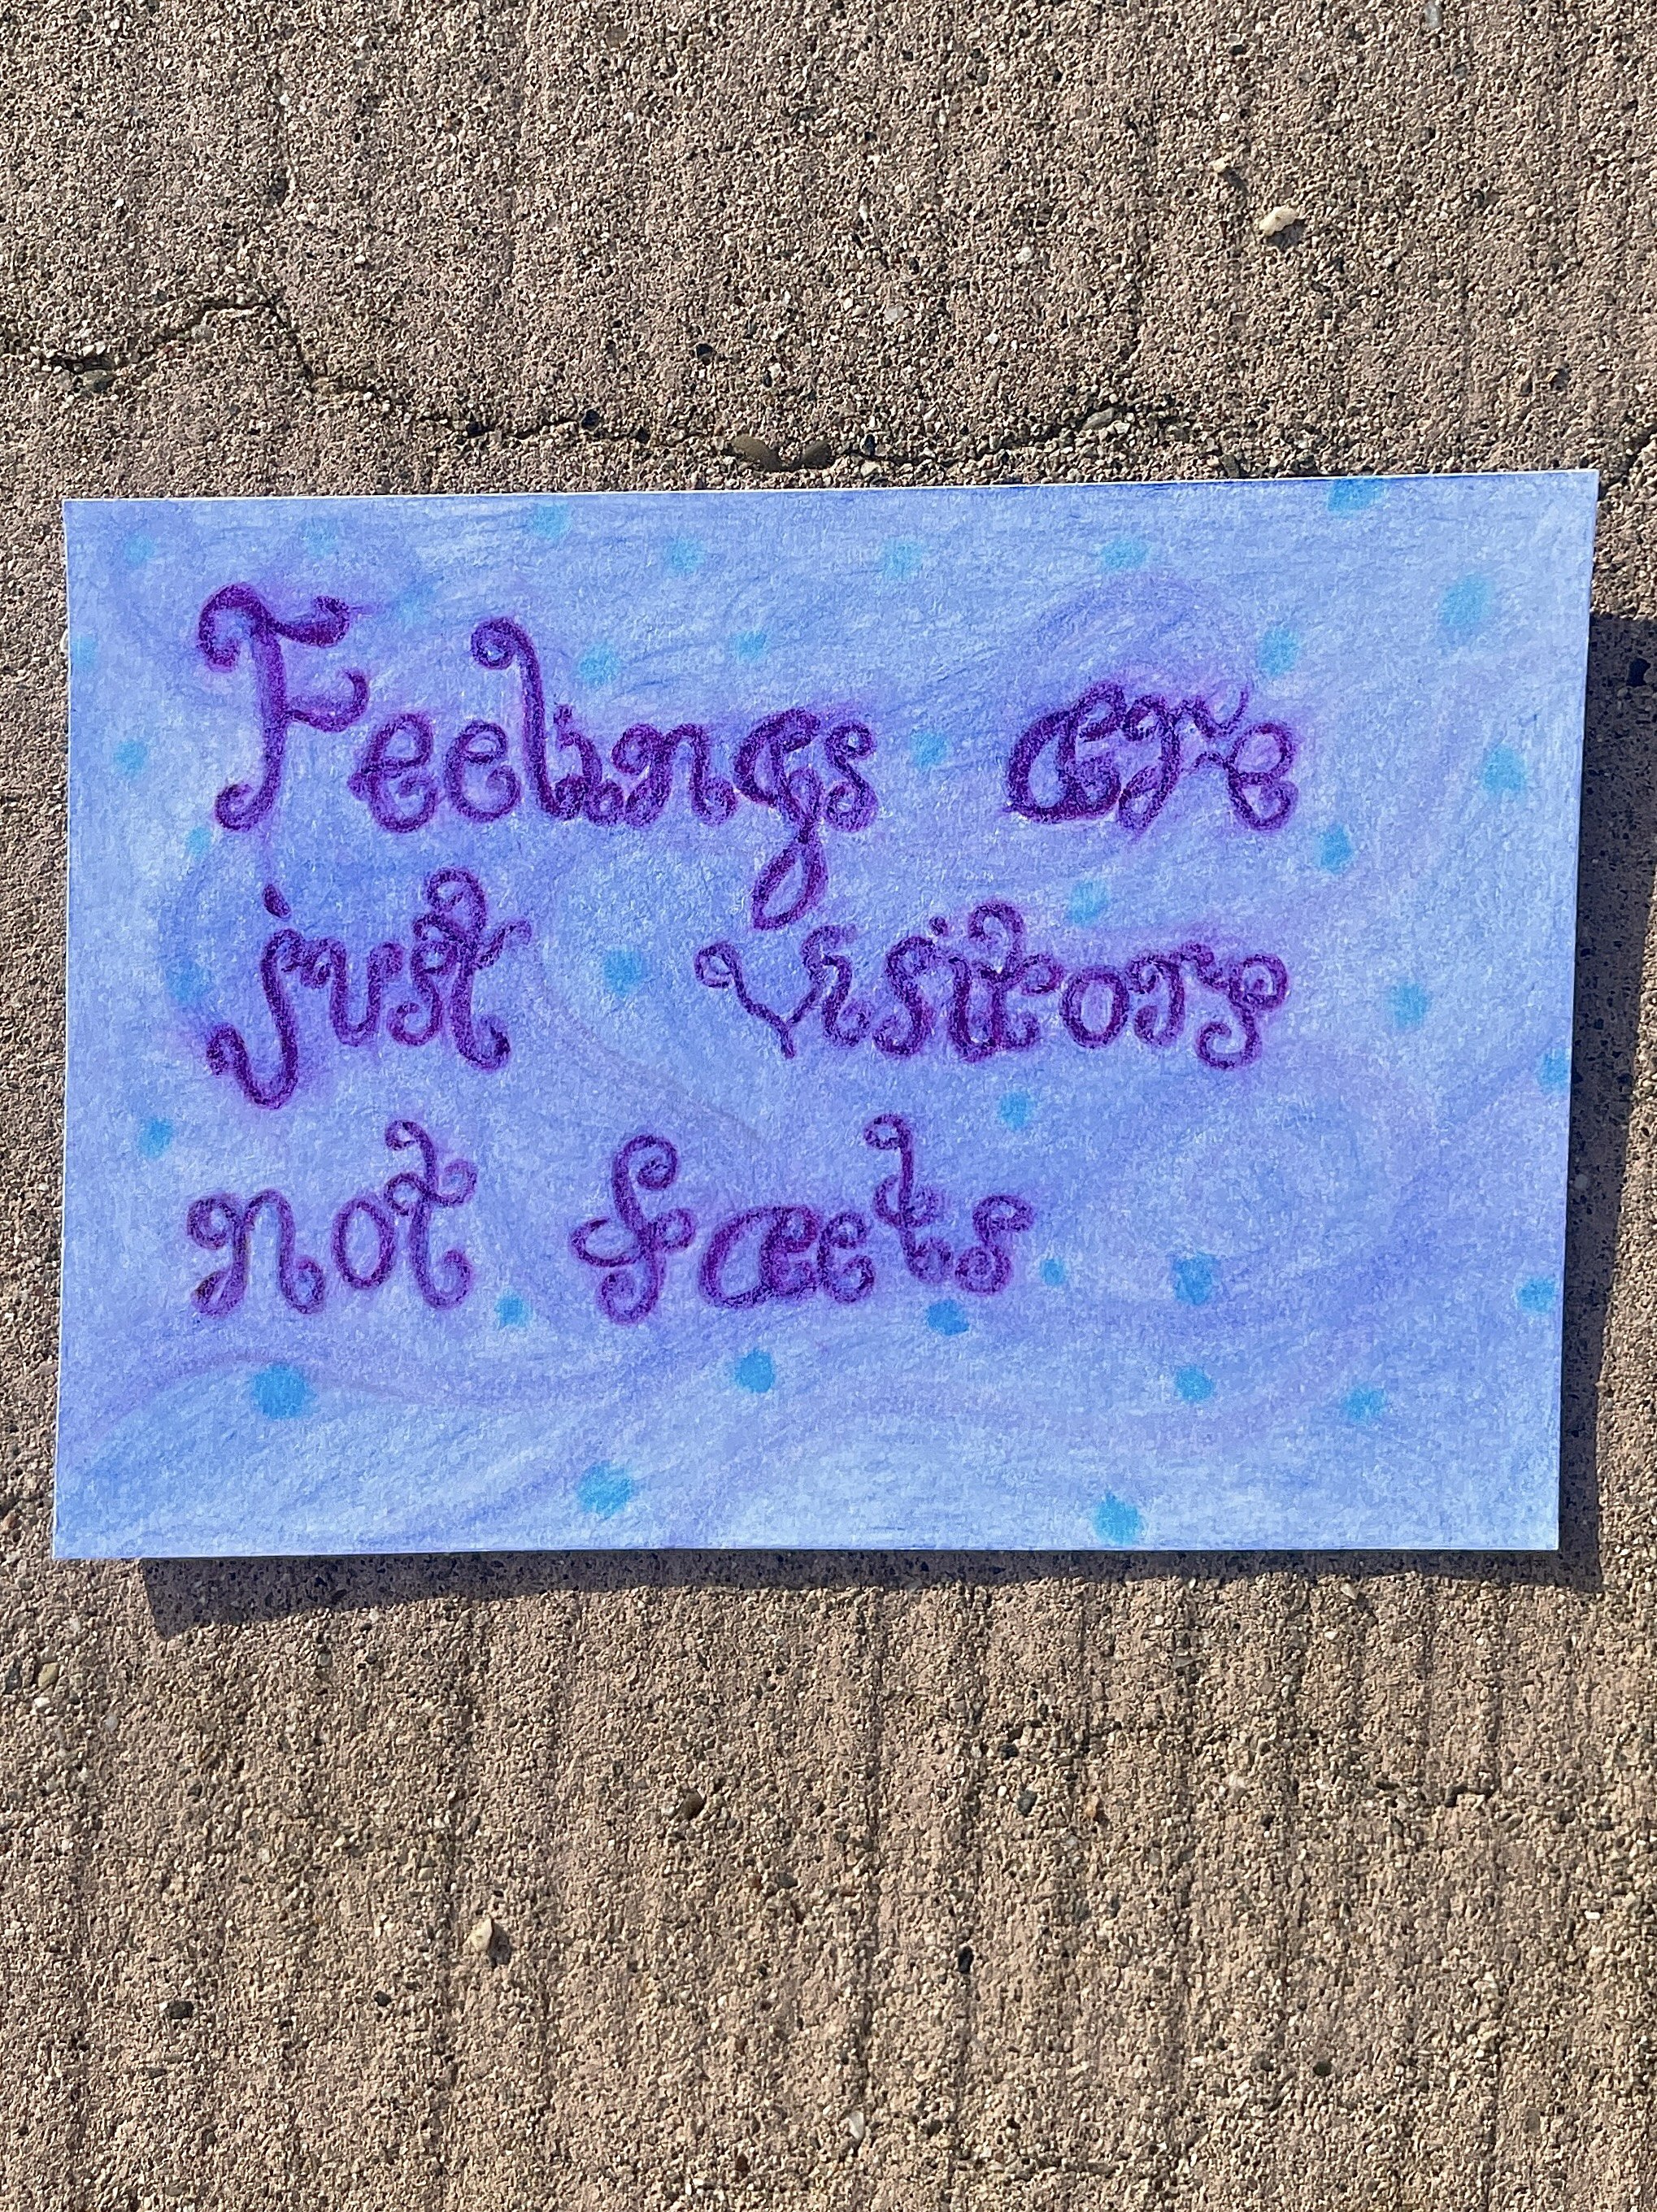 Feelings are
just visitors
not facts